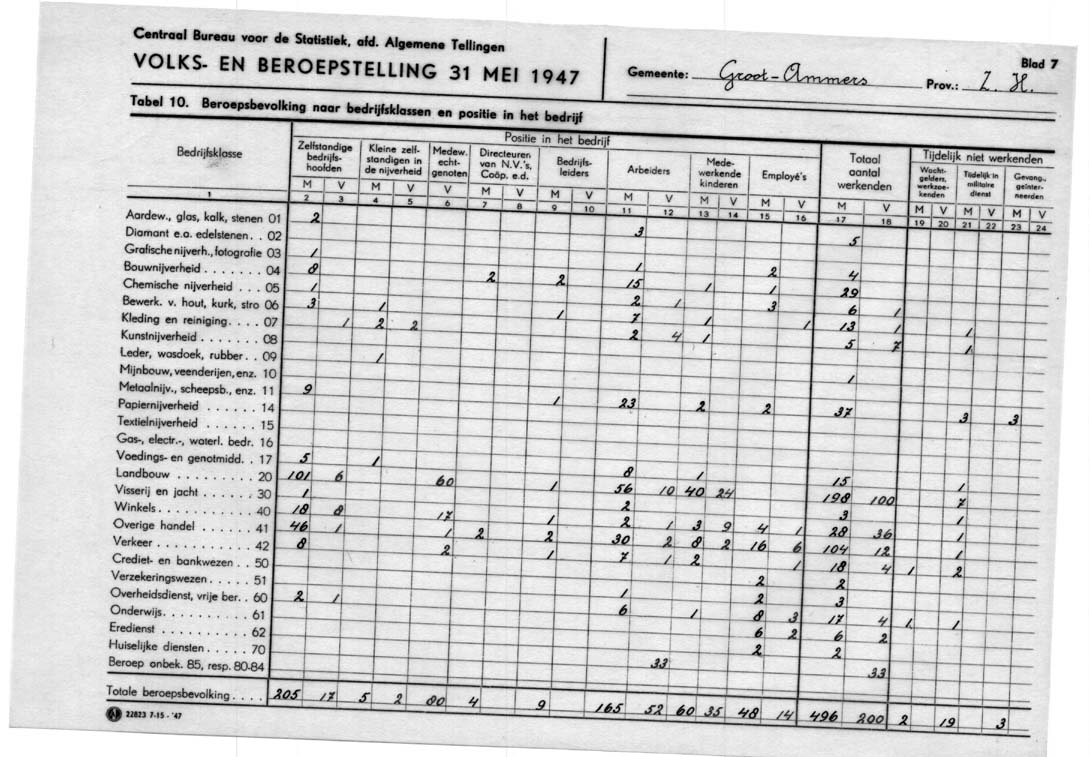 Centraal Bureau voor de Statistiek, afd. Algemene Tellingen
VOLKS- EN BEROEPSTELLING 31 MEI 1947
Gemeente: Groot-Ammers Prov.: Z. H.
Blad 7
Tabel 10. Beroepsbevolking naar bedrijfsklassen en positie in het bedrijf
Bedrijfsklasse
Positie in het bedrijf
Zelfstandige bedrijfs-hoofden
Kleine zelf-standigen in de nijverheid
Medew. echt-genoten
Directeuren van N.V.'s, Coöp. e.d.
Bedrijfs-leiders
Arbeiders
Mede-werkende kinderen
Employé's
Totaal aantal werkenden
Tijdelijk niet werkenden
Wacht-gelders, werkzoe-kenden
Tijdelijk in militaire dienst
Gevang., geïnter-neerden
M V M V V M V M V M V M V M V M V M V M V M V
1 2 3 4 5 6 7 8 9 10 11 12 13 14 15 16 17 18 19 20 21 22 23 24
Aardew., glas, kalk, stenen 01 2 3 5
Diamant e.a. edelstenen. . 02
Grafische nijverh., fotografie 03 1 1 2 4
Bouwnijverheid . . . . . . . 04 8 2 2 15 1 1 29
Chemische nijverheid . . . 05 1 2 1 3 6 1
Bewerk. v. hout, kurk, stro 06 3 1 1 7 1 1 13 1 1
Kleding en reiniging. . . . 07 1 2 2 2 4 1 5 7 1
Kunstnijverheid . . . . . . . 08
Leder, wasdoek, rubber. . 09 1 1
Mijnbouw, veenderijen, enz. 10
Metaalnijv., scheepsb., enz. 11 9 1 23 2 2 37 3 3
Papiernijverheid . . . . . . 14
Textielnijverheid . . . . . . 15
Gas-, electr.-, waterl. bedr. 16
Voedings- en genotmidd. . 17 5 1 8 1 15 1
Landbouw . . . . . . . . . . 20 101 6 60 1 56 10 40 24 198 100 7
Visserij en jacht . . . . . . 30 1 2 3 1
Winkels. . . . . . . . . . . . 40 18 8 17 1 2 1 3 9 4 1 28 36 1
Overige handel . . . . . . 41 46 1 1 2 2 30 2 8 2 16 6 104 12 1
Verkeer . . . . . . . . . . . 42 8 2 1 7 1 2 1 18 4 1 2
Crediet- en bankwezen . . 50 2 2
Verzekeringswezen. . . . . 51 1 2 3
Overheidsdienst, vrije ber. . 60 2 1 6 1 8 3 17 4 1 1
Onderwijs. . . . . . . . . . . 61 6 2 6 2
Eredienst . . . . . . . . . . . 62 2 2
Huiselijke diensten. . . . . 70 33 33
Beroep onbek. 85, resp. 80-84
Totale beroepsbevolking. . . . 205 17 5 2 80 4 9 165 52 60 35 48 14 496 200 2 19 3
22823 7-15 - '47